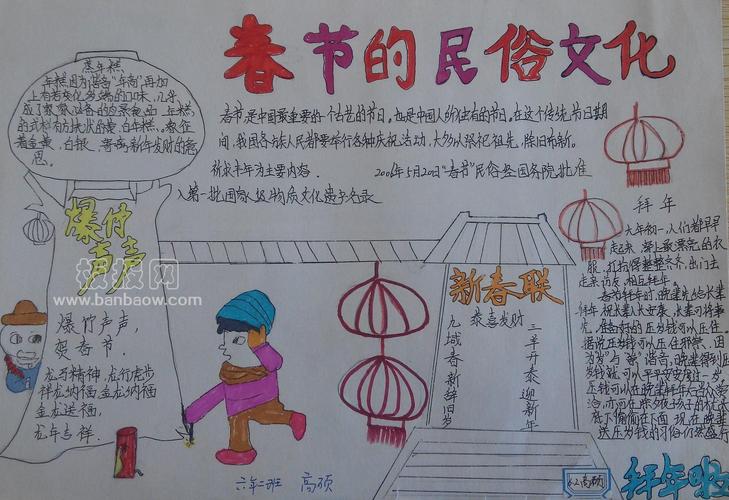 春节的民俗文化
春节是中国最重要的一个古艺的节日。也是中国人所独有的节日。在这个传统节日期
间，我国各族人民都要举行各种庆祝活动，大多以祭祀祖先，除旧布新。
祈求丰年为主要内容。 2006年5月20日"春节"民俗经国务院批准
入第一批国家级物质文化遗产名录
蒸年糕
年糕因为谐音"年高"再加
上有着变化多端的口味，几乎
成了家家必备的应景食品。年糕
的式样有方块状的黄、白年糕，象征
着金黄、白银，寄寓新年发财的意
思。
爆竹
声声
报报网
www.banbaow.com
爆竹声声，
贺春节.
龙马精神，龙行虎步
祥龙纳福 金龙纳福
金龙送福
龙年吉祥.
新春联
恭喜发财
三羊开泰迎新年
九域春新辞旧岁
拜年
大年初一，人们都早早
起来，穿上最漂亮的衣
服，打扮得整整齐齐，出门去
走亲访友，相互拜年
春节拜年时，晚辈先给长辈
拜年，祝长辈人长安康，长辈可将事
先准备好的压岁钱可以压住
据说压岁钱可以压住邪祟，因
为"岁"与"祟"谐音，晚辈得到压
岁钱就可以平平安安度过一岁
压岁钱可以在晚辈拜年后当众赏
六年二班 高硕
6.2高硕
拜年啦